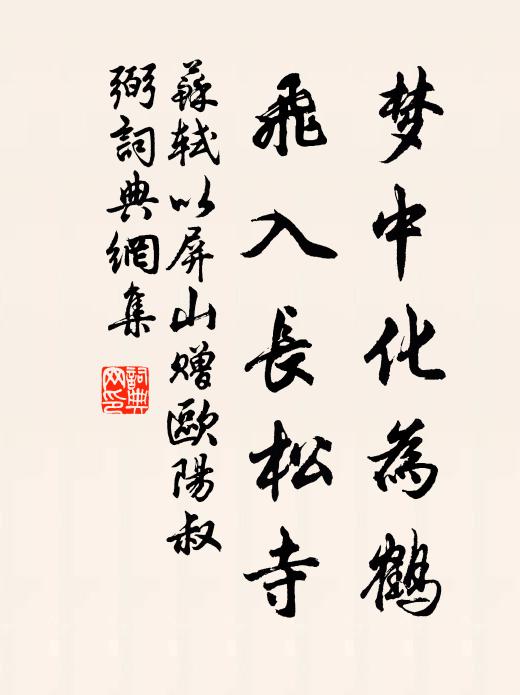 梦中化為鹤
飛入長松寺
蘇軾以屏山赠歐陽叔
弼詞典網集
詞典网印